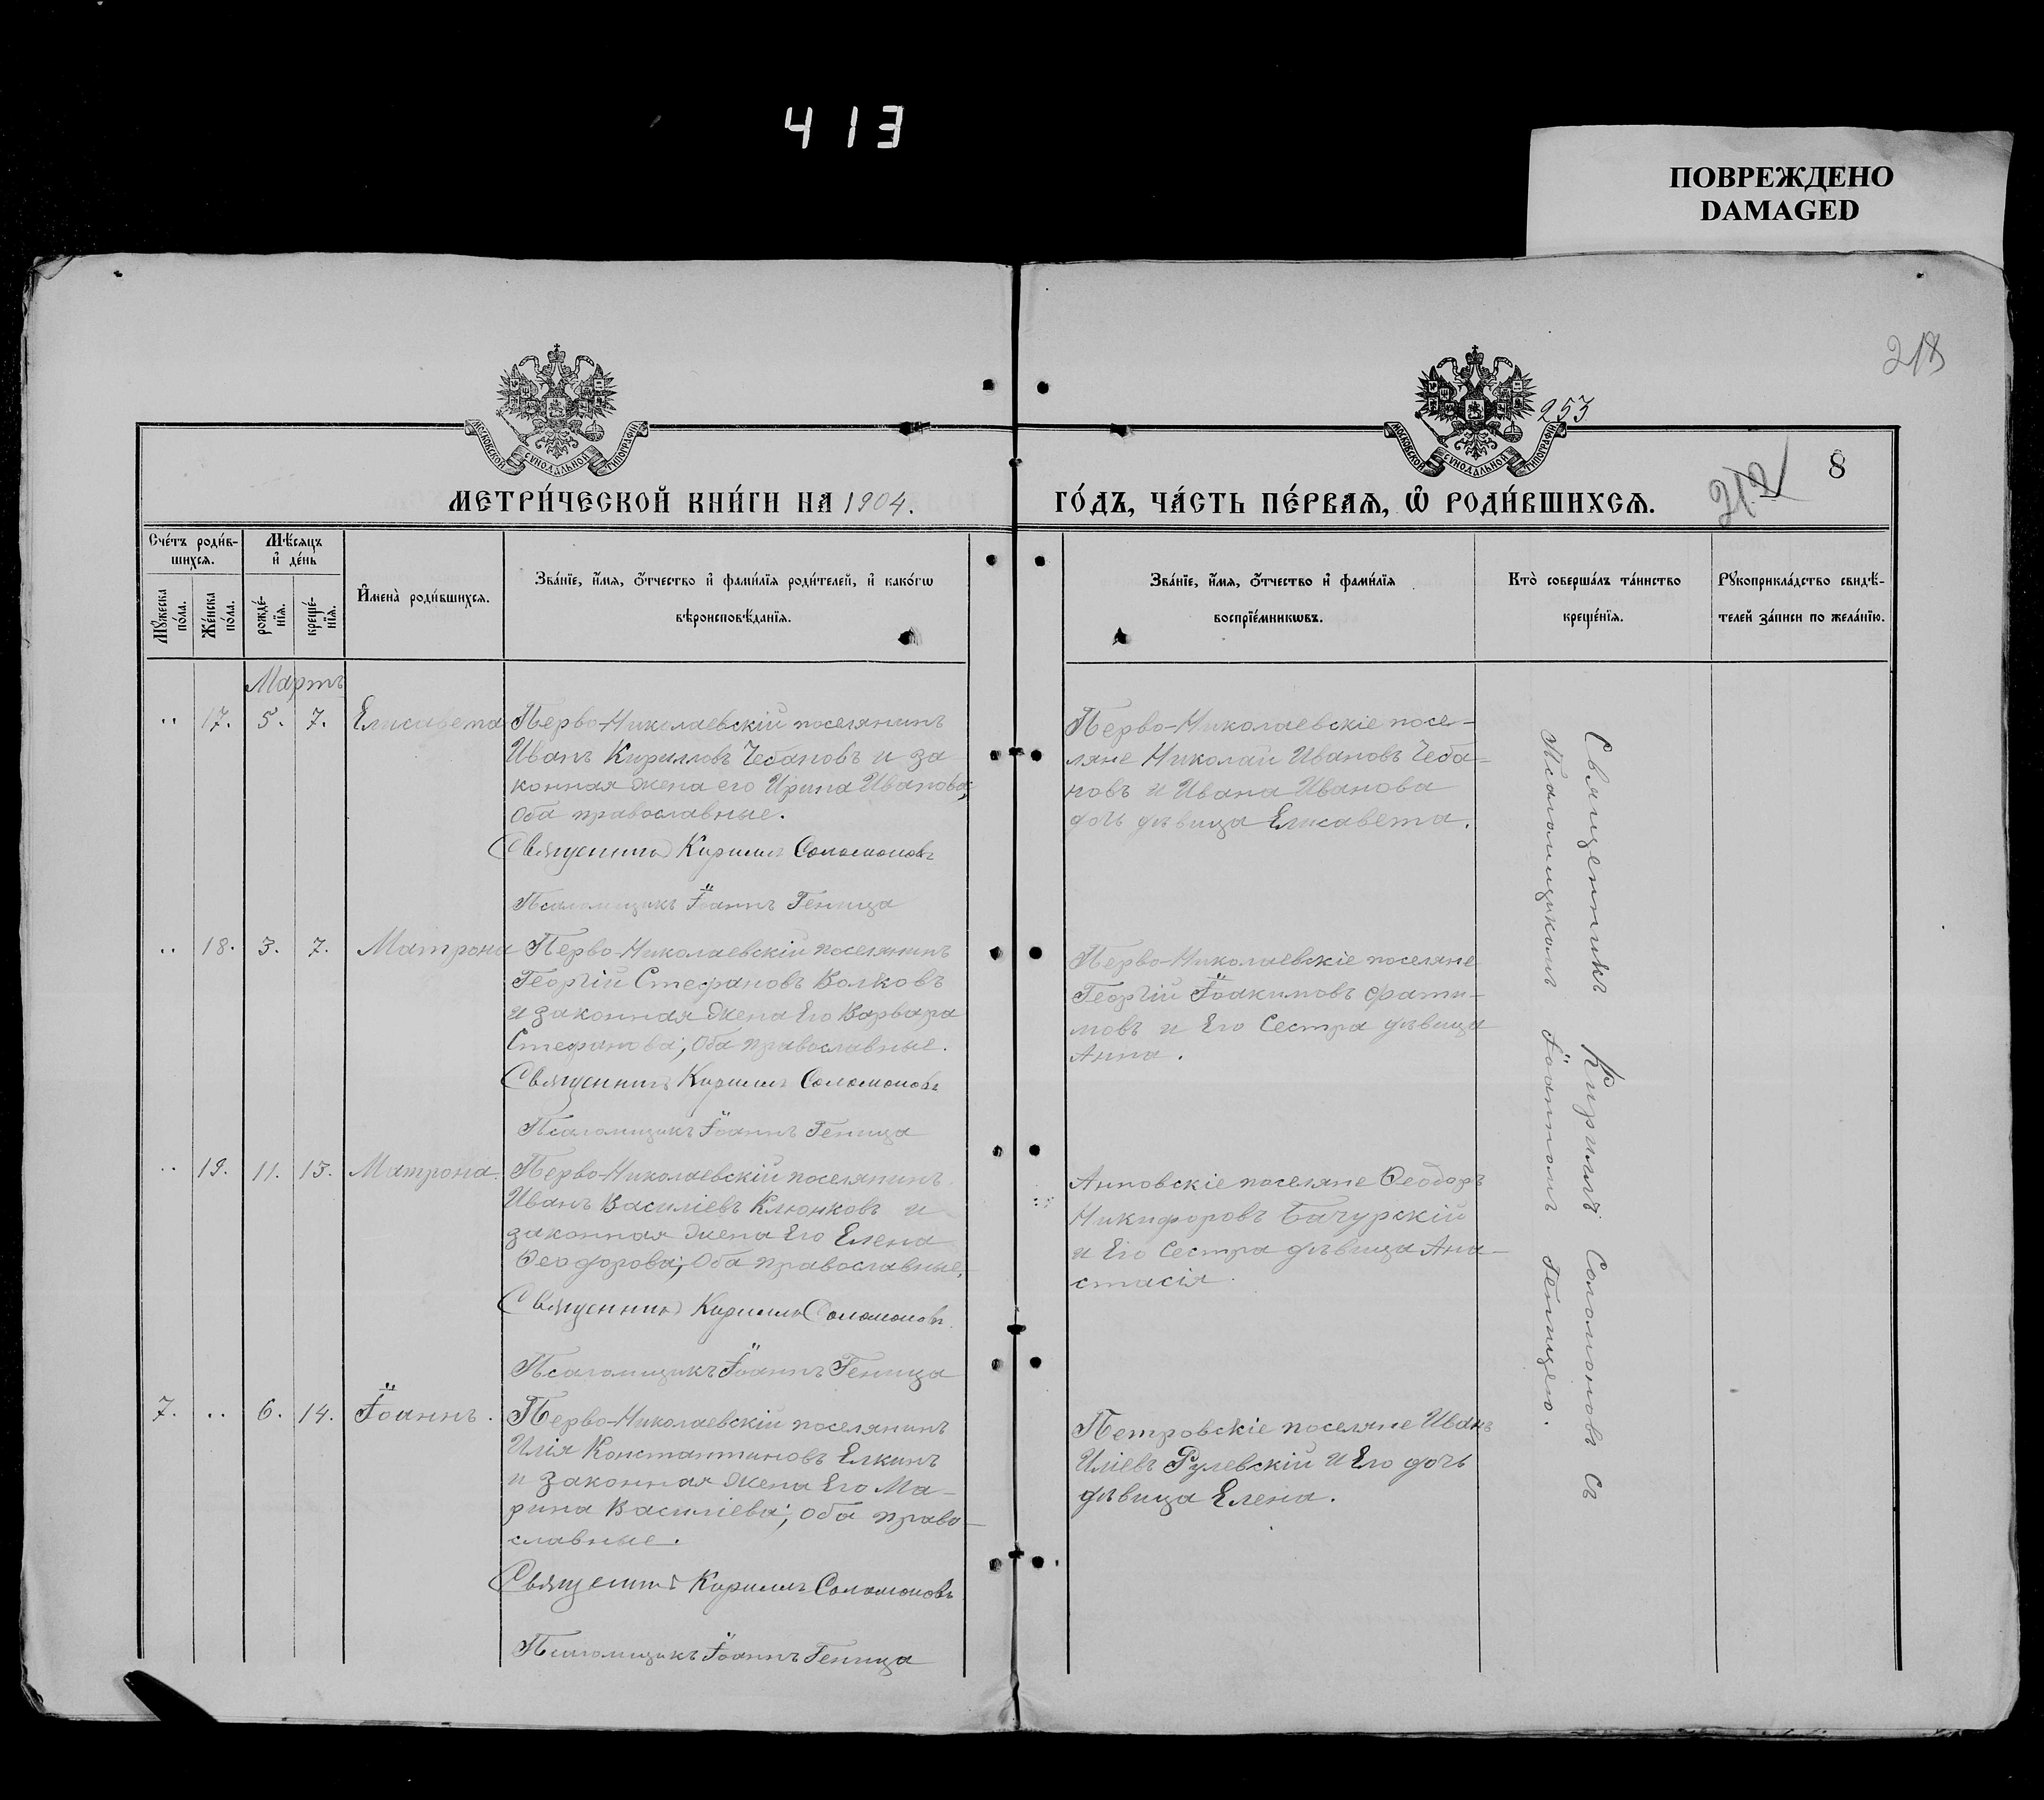 413
ПОВРЕЖДЕНО
DAMAGED
218
253
212
8
МОСКОВСКОЙ СѴНОДАЛЬНОЙ ТИПОГРАФІИ
МОСКОВСКОЙ СѴНОДАЛЬНОЙ ТИПОГРАФІИ
МЕТРИ́ЧЕСКОЙ КНИ́ГИ НА 1904.
ГО́ДЪ, ЧА́СТЬ ПЕ́РВАЯ, Ѡ҆ РОДИ́ВШИХСЯ.
Сче́тъ роди́в-
шихся.
Мѣ́сяцъ
и҆ де́нь
Мꙋ́жеска
по́ла.
Же́нска
по́ла.
рожде́-
нїя.
креще́-
нїя.
И҆мена̀ роди́вшихся.
Зва́нїе, и҆́мя, о҆́тчество и҆ фами́лїя роди́телей, и҆ како́гѡ
вѣроисповѣ́данїя.
Зва́нїе, и҆́мя, о҆́тчество и҆ фами́лїя
воспрїе́мникѡвъ.
Кто̀ соверша́лъ та́инство
креще́нїя.
Рꙋкоприкла́дство свидѣ́-
телей за́писи по жела́нїю.
Мартъ
.. 17. 5. 7. Елисавета
Перво-Николаевскій поселянинъ
Иванъ Кирилловъ Чебановъ и за
конная жена его Ирина Иванова;
Оба православные.
Священникъ Кириллъ Соломоновъ
Псаломщикъ Іоаннъ Геница
Перво-Николаевскіе посе-
ляне Николай Ивановъ Чеба-
новъ и Ивана Иванова
дочь дѣвица Елисавета.
.. 18. 3. 7. Матрона
Перво-Николаевскій поселянинъ
Георгій Стефановъ Волковъ
и законная жена Его Варвара
Стефанова; Оба православные.
Священникъ Кириллъ Соломоновъ
Псаломщикъ Іоаннъ Геница
Перво-Николаевскіе поселяне
Георгій Іоакимовъ Фати-
мовъ и Его Сестра дѣвица
Анна.
.. 19. 11. 13. Матрона.
Перво-Николаевскій поселянинъ
Иванъ Василіевъ Клюнковъ и
законная жена Его Елена
Ѳеодорова; Оба православные.
Священникъ Кириллъ Соломоновъ
Псаломщикъ Іоаннъ Геница
Анновскіе поселяне Ѳеодоръ
Никифоровъ Бачурскій
и Его Сестра дѣвица Ана-
стасія.
7. .. 6. 14. Іоаннъ.
Перво-Николаевскій поселянинъ
Илія Константиновъ Елкинъ
и законная жена Его Ма-
рина Василіева; Оба право-
славные.
Священникъ Кириллъ Соломоновъ
Псаломщикъ Іоаннъ Геница
Петровскіе поселяне Иванъ
Иліевъ Рулевскій и Его дочь
дѣвица Елена.
Священникъ Кириллъ Соломоновъ съ
Псаломщикомъ Іоанномъ Геницею.